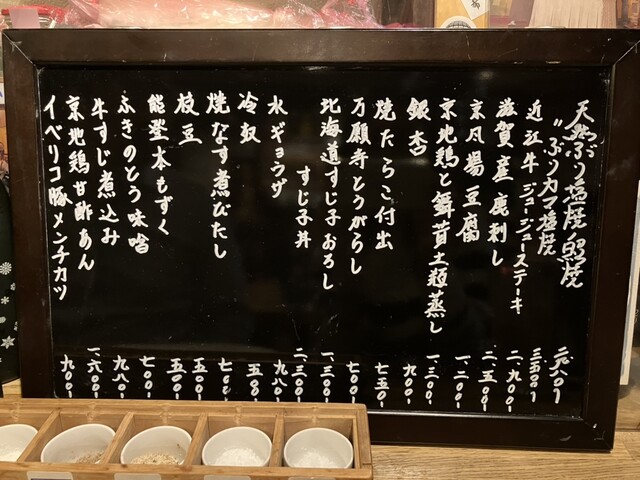 天然ぶり塩焼 照焼 二八〇〇-
〃 ぶりカマ塩焼 三五〇〇-
近江牛ジュージューステーキ 二、九〇〇-
滋賀産鹿刺し 二、五〇〇-
京丹揚豆腐 一、二〇〇-
京地鶏と舞茸土類蒸し 一、三〇〇-
銀杏 九〇〇-
焼たらこ付出 七五〇-
万願寺とうがらし 七〇〇-
北海道すじ子おろし 一、三〇〇-
すじ子丼 二、三〇〇-
水ギョウザ 九八〇-
冷奴 五〇〇-
焼なす煮びたし 七〇〇-
枝豆 五〇〇-
能登本もずく 七〇〇-
ふきのとう味噌 九八〇-
牛すじ煮込み 一、六〇〇-
京地鶏甘酢あん
イベリコ豚メンチカツ 九〇〇-